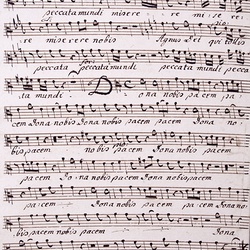 peccata mundi misere re mi se re
re miserere nobis Agnus Dei qui tollis
peccata peccata mundi peccata mundi
ta mundi. Dona nobis pacem pa
cem Dona nobis Dona nobis pacem pacem Dona no
bis pacem nobis pacem Dona nobis
pa cem Dona nobis pacem Dona no
pa cem Dona nobis pacem pacem Dona
nobis pacem nobis pacem Dona